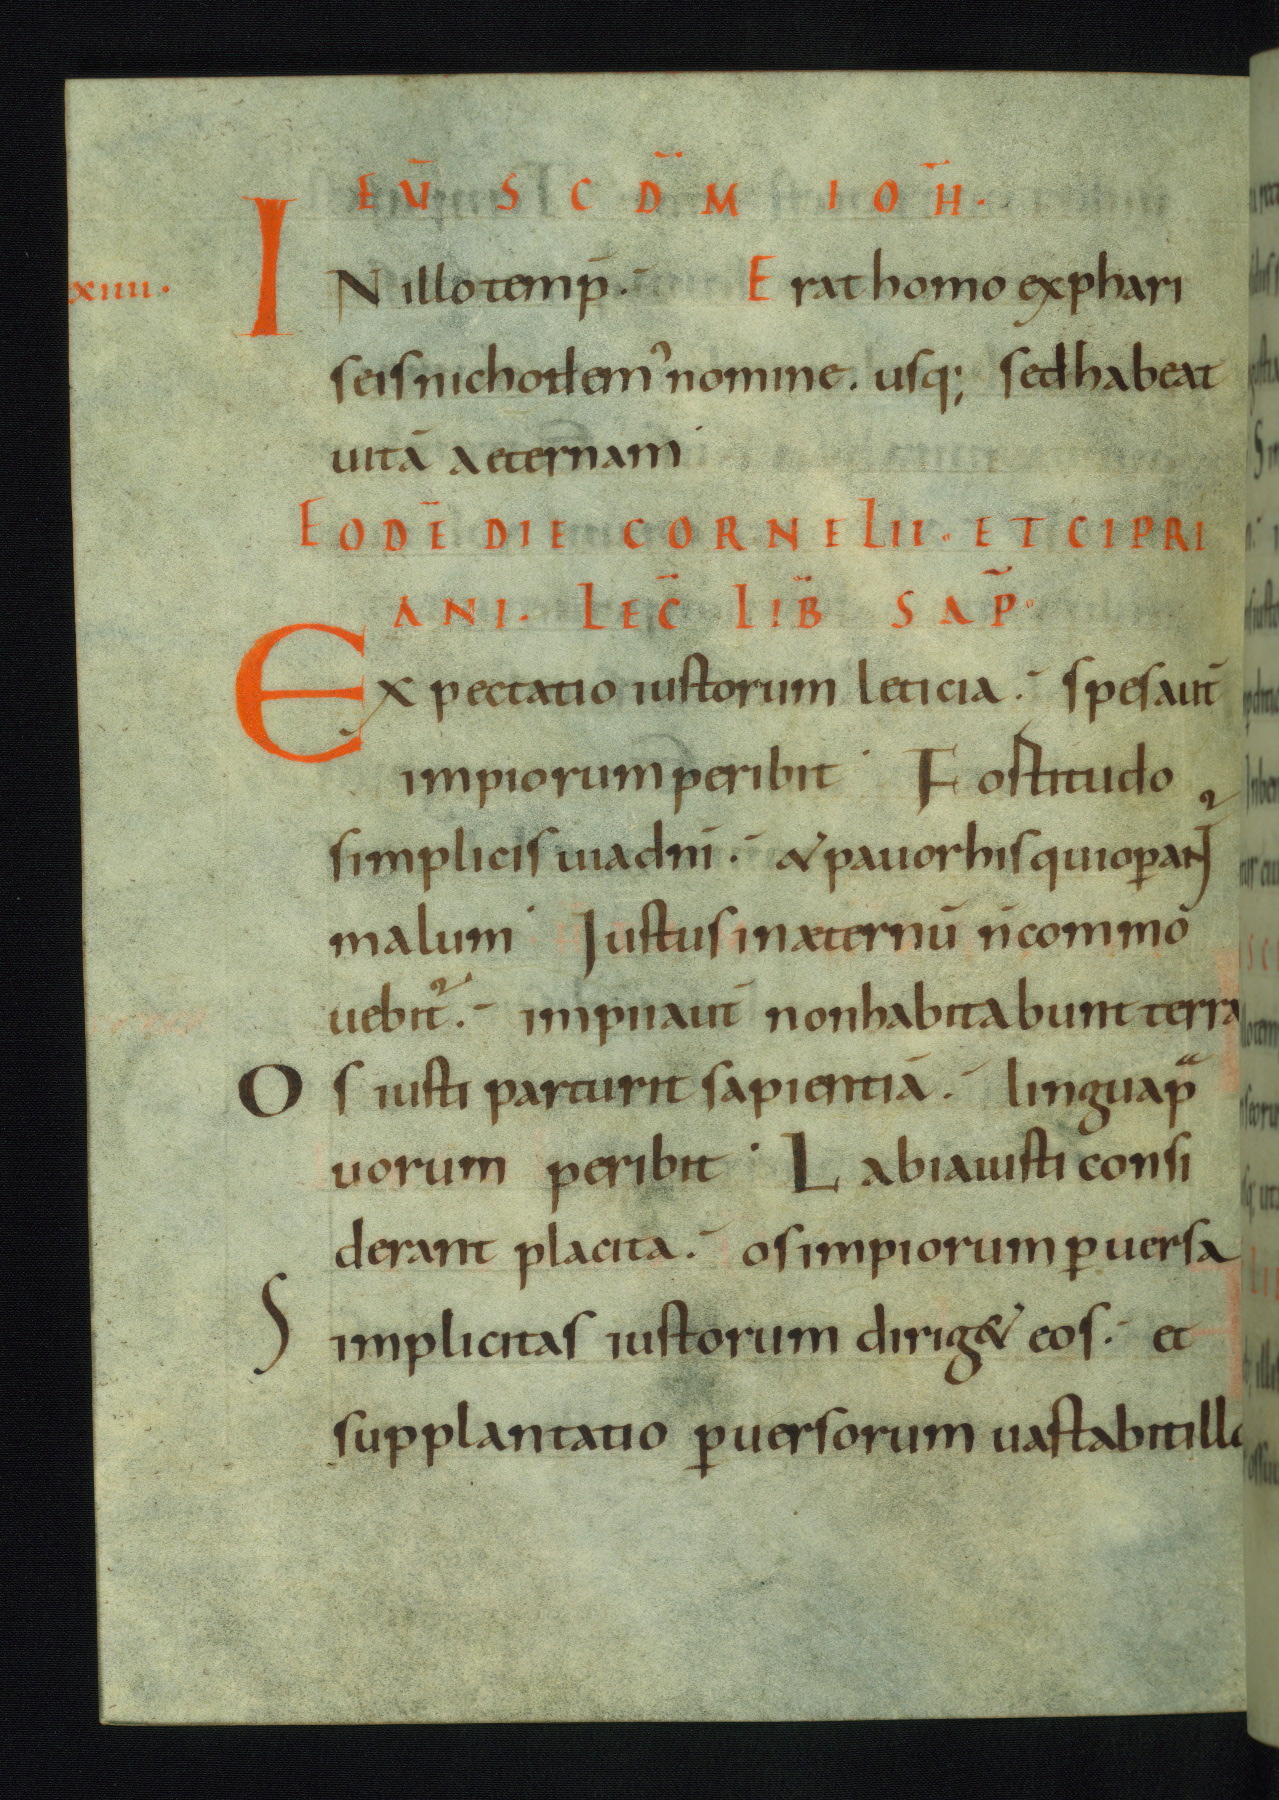 EV̄ SCDM̄ IOH̄.
xiiii.
IN illo temp̄. Erat homo ex phari
seis nichodem᾽ nomine. usq; sed habeat
uitā aeternam
EODĒ DIE CORNELII. ET CIPRI
ANI. LEC̄ LIB̄ SAP̄.
Expectatio iustorum leticia. spes aut̄
impiorum peribit Fostitudo
simplicis uia dn̄i. & pauor his qui oꝑant᷑
malum Iustus in æternū n̄ commo
uebit᷑. impii aut̄ non habitabunt terrā
Os iusti parturit sapientiā. lingua pᵃ
uorum peribit Labia iusti consi
derant placita. os impiorum ꝑuersa
Simplicitas iustorum dirig& eos. et
supplantatio ꝑuersorum uastabit illo